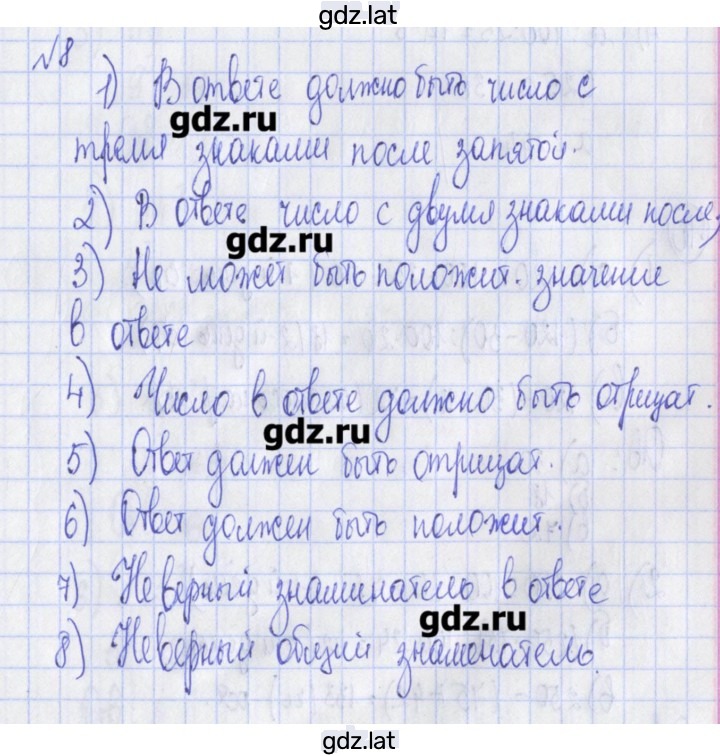 gdz.lat
№8
1) В ответе должно быть число с
gdz.ru
тремя знаками после запятой.
2) В ответе число с двумя знаками после,
gdz.ru
3) Не может быть положит. значение
в ответе
4) Число в ответе должно быть отрицат.
gdz.ru
5) Ответ должен быть отрицат.
6) Ответ должен быть положит.
7) Неверный знаминатель в ответе
gdz.ru
8) Неверный общий знаменатель.
gdz.lat